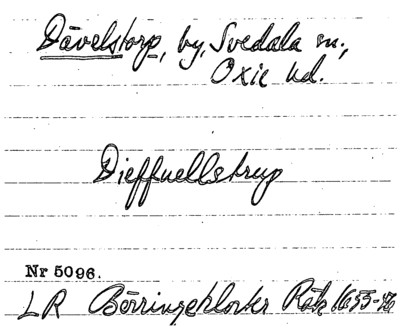 Dävelstorp, by, Svedala sn.,
Oxie hd.
Dieffuellstrup
Nr 5096.
LR Börringekloster Räk 1655-76